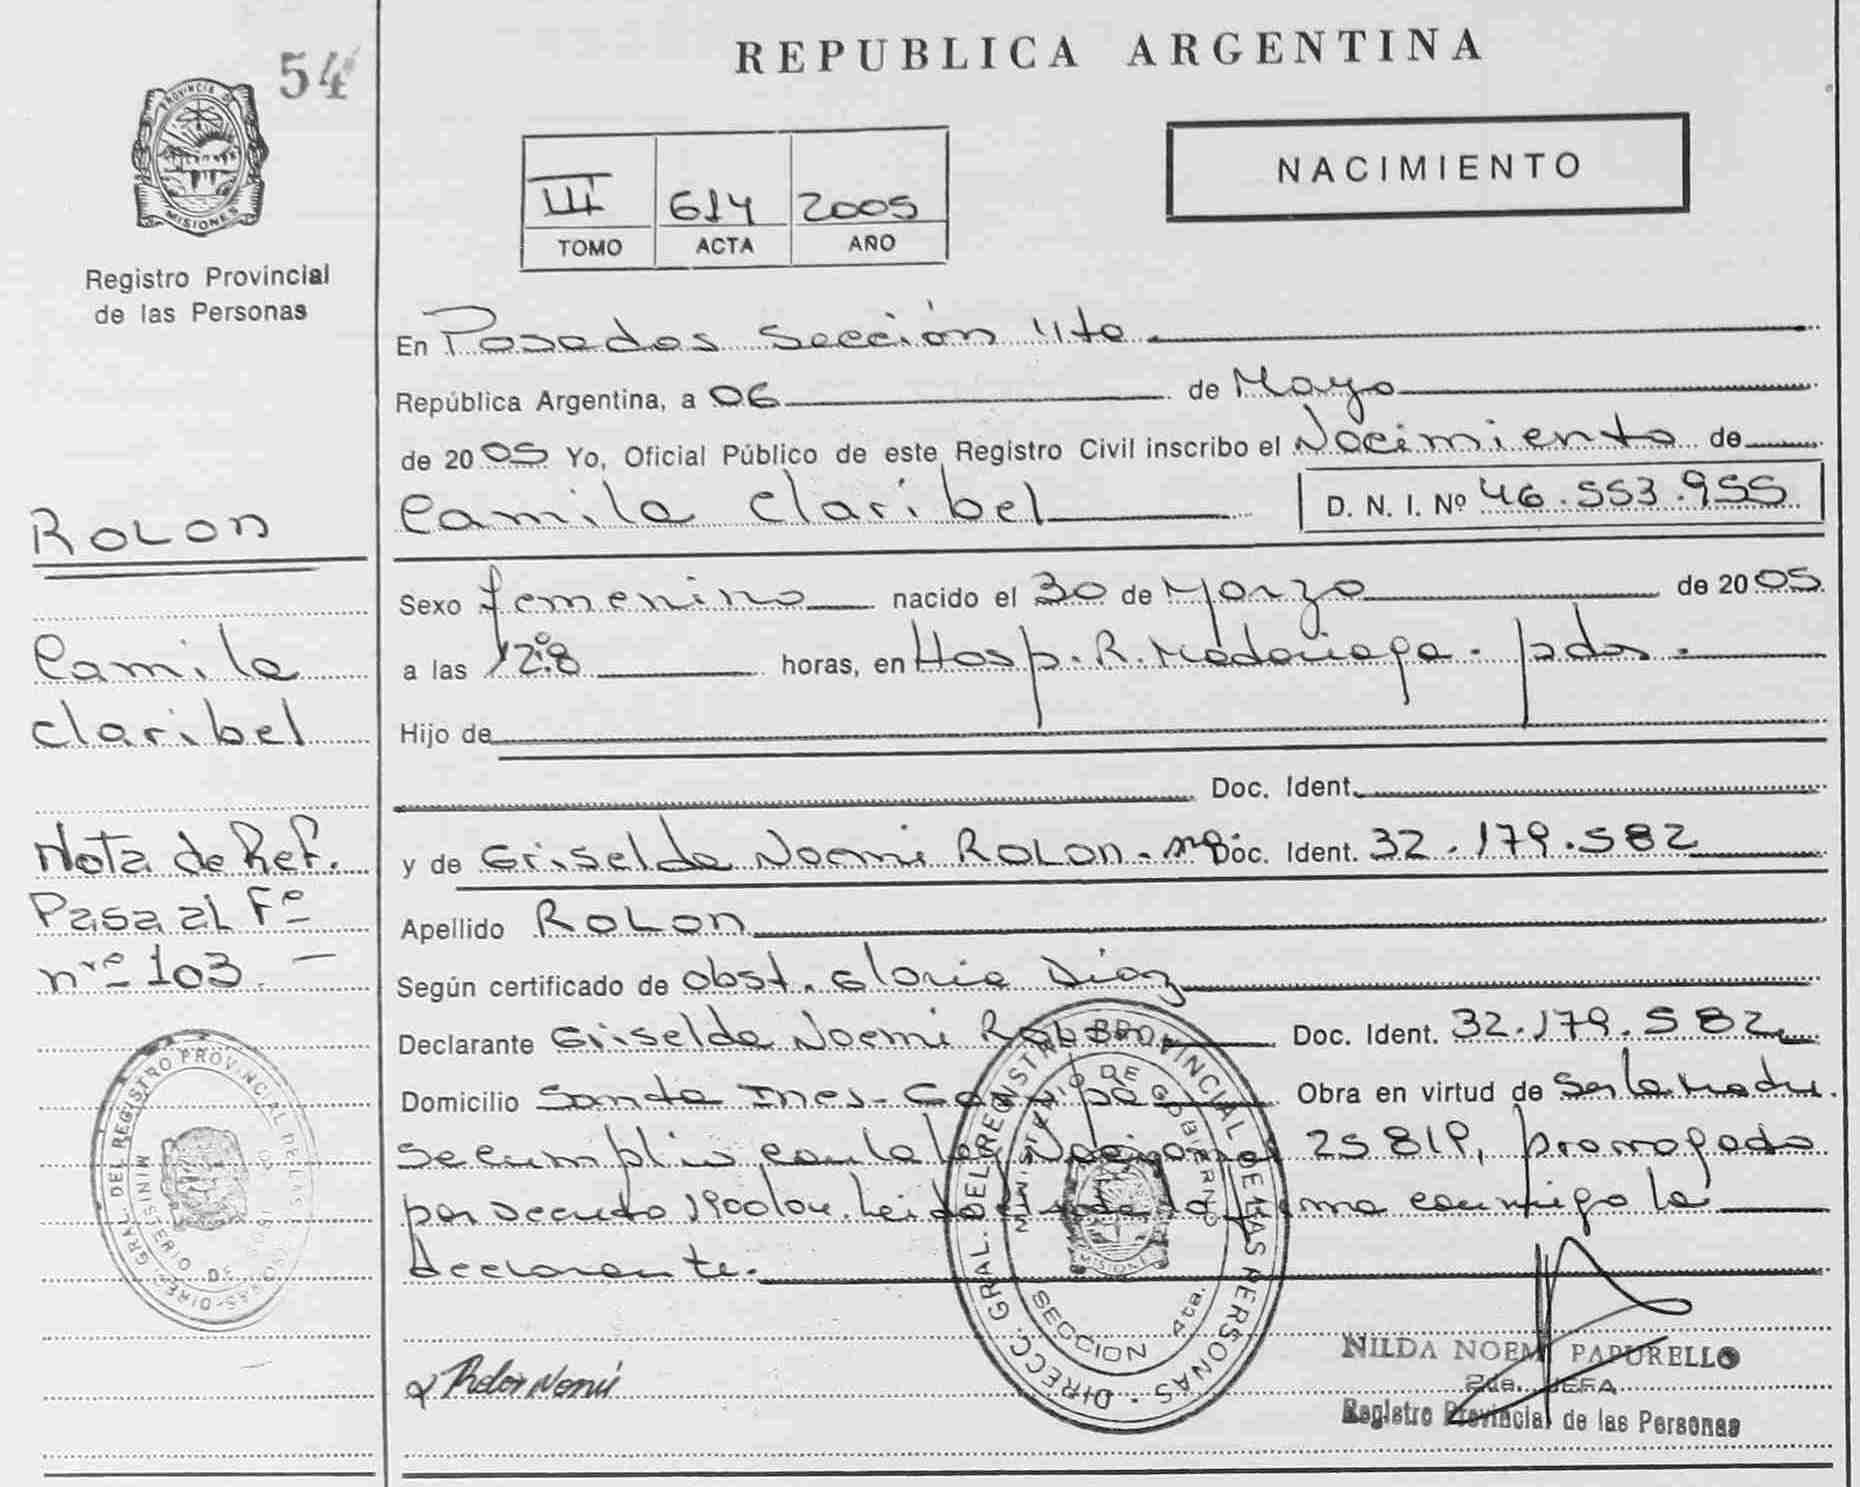 54
PROVINCIA DE
MISIONES
Registro Provincial
de las Personas
REPUBLICA ARGENTINA
III 614 2005
TOMO ACTA AÑO
NACIMIENTO
En Posadas Sección 4ta
República Argentina, a 06 de Mayo
de 2005 Yo, Oficial Público de este Registro Civil inscribo el Nacimiento de
Camila Claribel D. N. I. Nº 46.553.955
Sexo femenino nacido el 30 de Marzo de 2005
a las horas, en Hosp. R. Madariaga. pdas.
Hijo de
Doc. Ident.
y de Griselda Noemi ROLON. Doc. Ident. 32.179.582
Apellido ROLON
Según certificado de obst. Gloria Diaz
Declarante Griselda Noemi Rolon Doc. Ident. 32.179.582
Domicilio Santa Ines- Garupa Obra en virtud de ser la Madre.
Se cumplio con la ley Nacional 25819, prorrogado
por decreto Leida el acta la firma conmigo la
declarante.
ROLON
Camila
Claribel
Nota de Ref.
Pasa al Fº
nro 103. -
DIRECC. GRAL. DEL REGISTRO PROVINCIAL DE LAS PERSONAS
MINISTERIO DE GOBIERNO
MISIONES
SECCION 4ta.
DIRECC. GRAL. DEL REGISTRO PROVINCIAL DE LAS
MINISTERIO DE
Rolon Noemi
NILDA NOEMI PAPURELLO
2da. JEFA
Registro Provincial de las Personas